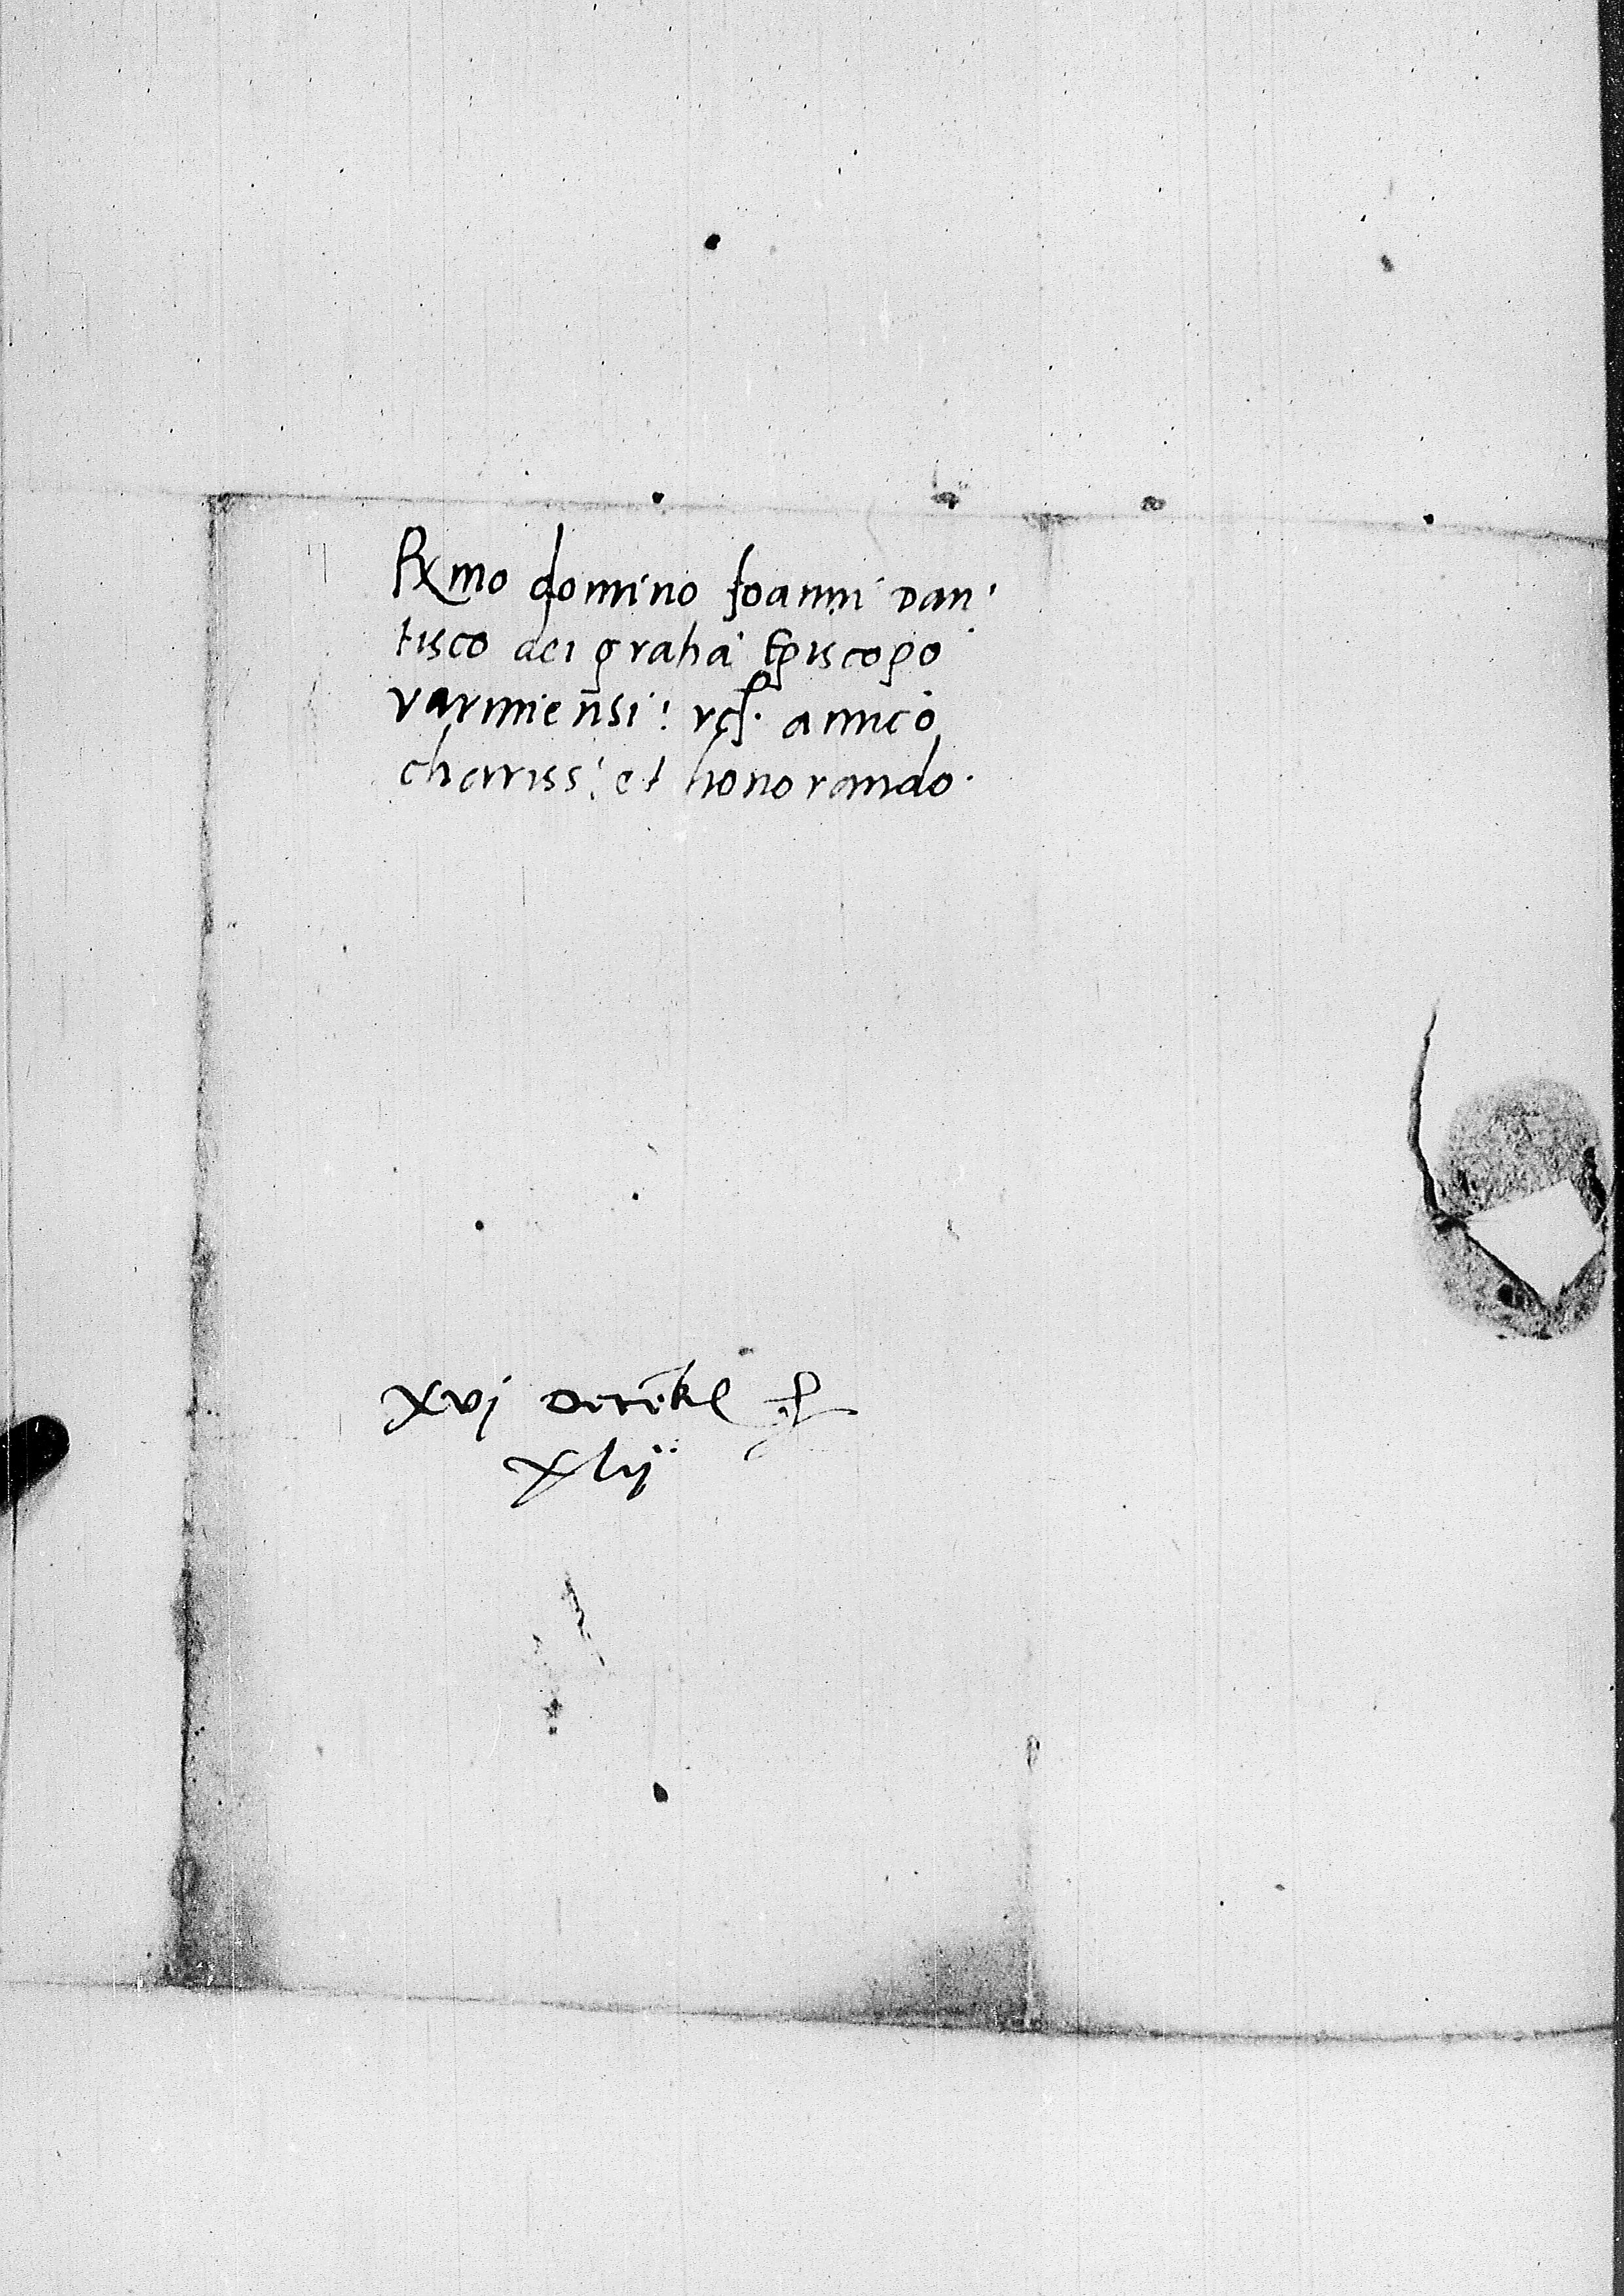 Rxmo domino Joanni Dan
tisco dei gratia Episcopo
varmiensi: amico
chariss: et honorando.
xvj Decembr
xlij